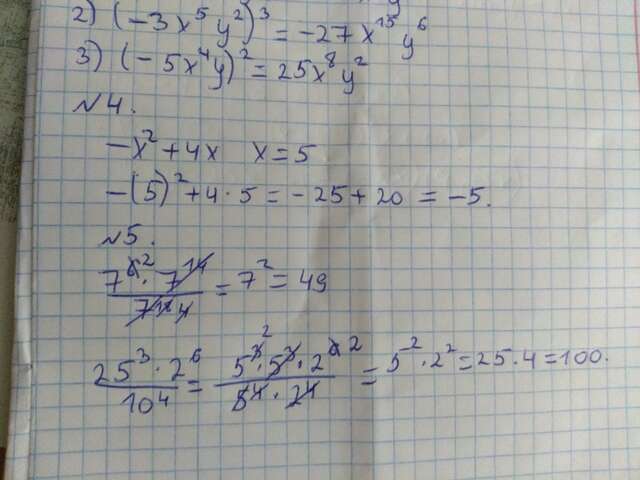 2) (-3x⁵y²)³ = -27x¹⁵y⁶
3) (-5x⁴y)² = 25x⁸y²
№4.
-x²+4x x=5
-(5)²+4·5 = -25+20 = -5.
№5.
7² · 7¹⁴ / 7¹⁴ = 7² = 49
25³ · 2⁶ / 10⁴ = 5³ · 5³ · 2⁶ / 5⁴ · 2⁴ = 5² · 2² = 25·4 = 100.